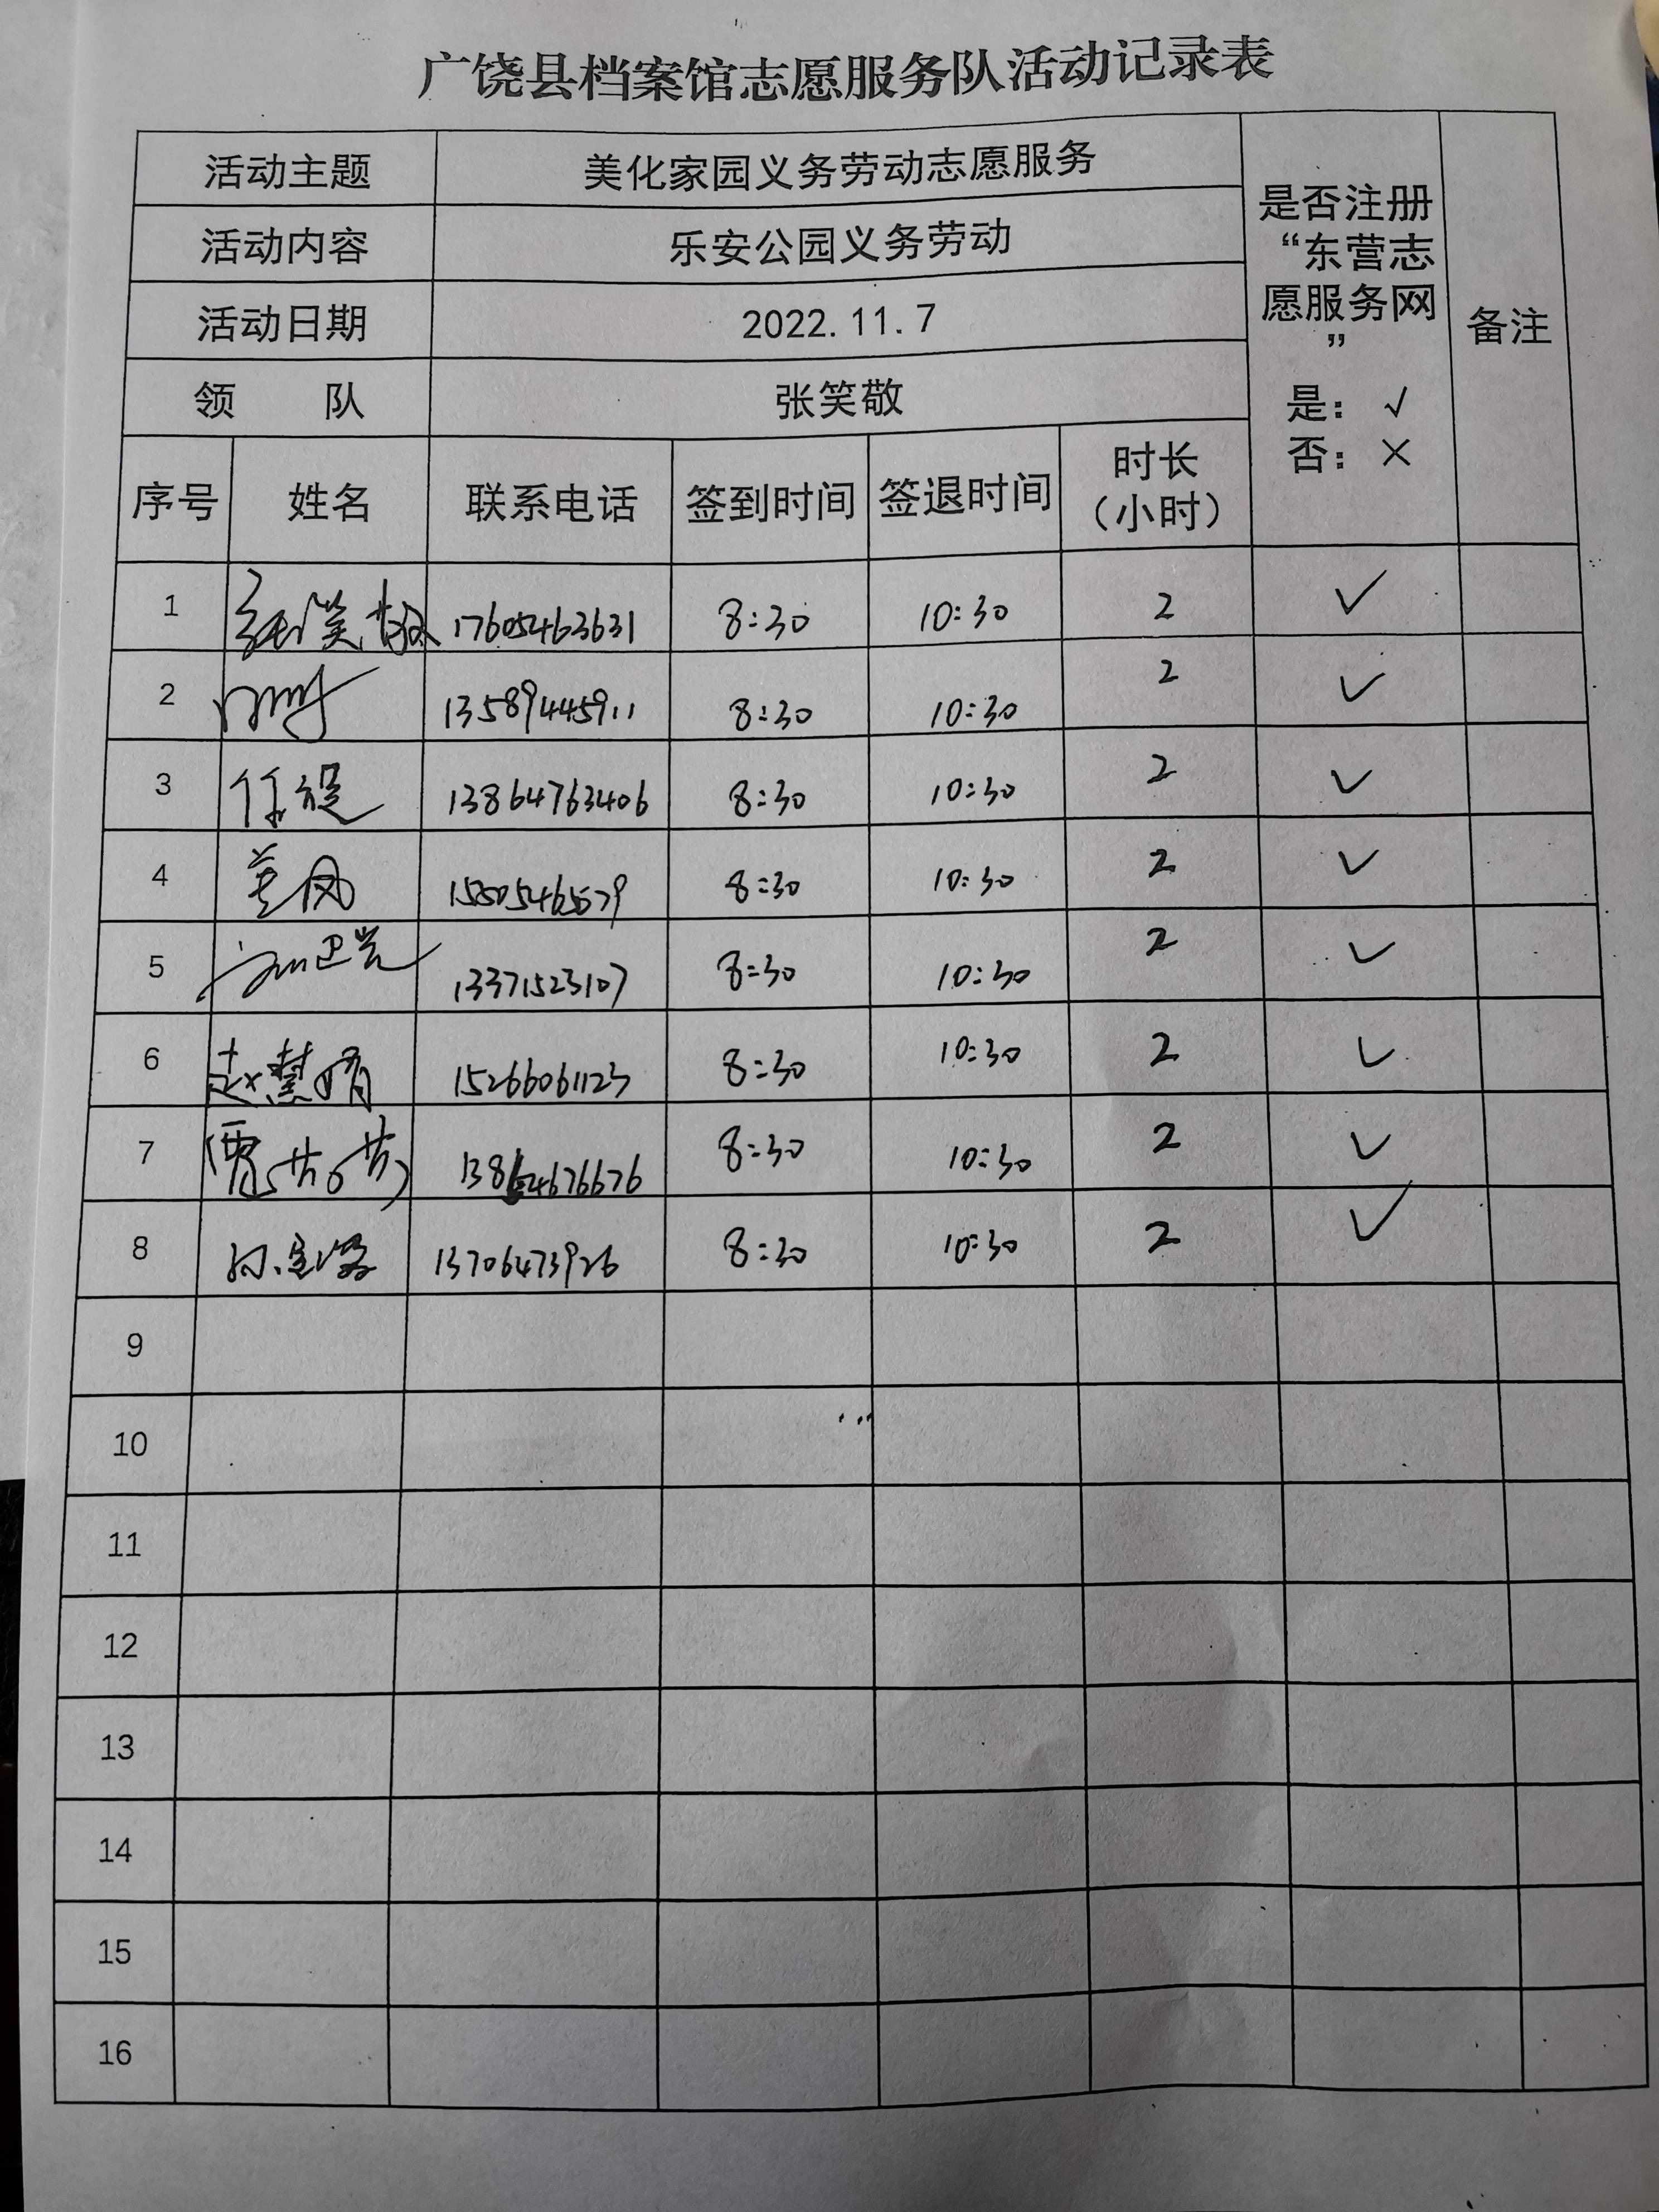 广饶县档案馆志愿服务队活动记录表
活动主题 美化家园义务劳动志愿服务
活动内容 乐安公园义务劳动
活动日期 2022.11.7
领 队 张笑敬
是否注册
“东营志
愿服务网
”
是：√
否：×
备注
序号 姓名 联系电话 签到时间 签退时间 时长
（小时）
1 张笑敬 17605463631 8:30 10:30 2 ✓
2 13589445911 8:30 10:30 2 ✓
3 任祝 13864763406 8:30 10:30 2 ✓
4 8:30 10:30 2 ✓
5 13371523107 8:30 10:30 2 ✓
6 赵慧娟 15266061123 8:30 10:30 2 ✓
7 贾芳芳 13864676676 8:30 10:30 2 ✓
8 13706473926 8:30 10:30 2 ✓
9
10
11
12
13
14
15
16